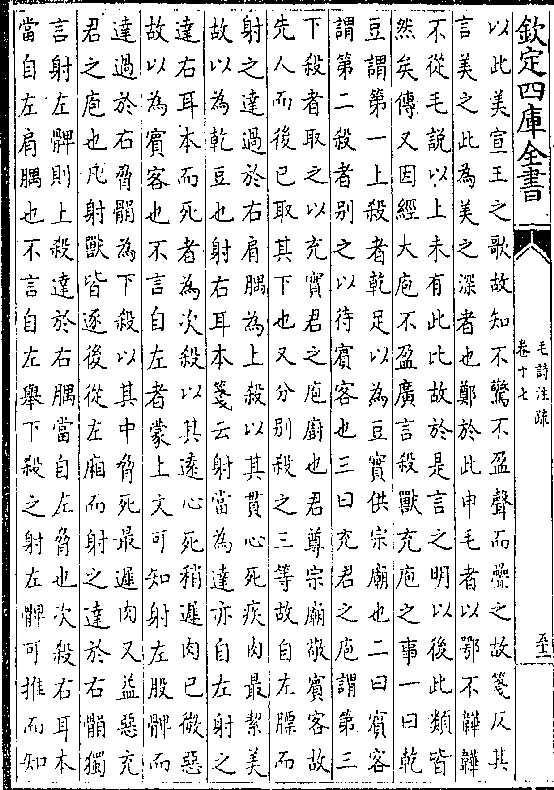 欽定四庫全書
毛詩注疏
卷十七
以此美宣王之歌故知不驚不盈聲而疊之故箋反其
言美之此為美之深者也鄭於此申毛者以鄂不韡韡
不從毛說以上未有此比故於是言之明以後此類皆
然矣傳又因經大庖不盈廣言殺獸充庖之事一曰乾
豆謂第一上殺者乾足以為豆實供宗廟也二曰賓客
謂第二殺者別之以待賓客也三曰充君之庖謂第三
下殺者取之以充實君之庖廚也君尊宗廟敬賓客故
先人而後己取其下也又分別殺之三等故自左膘而
射之達過於右肩腢為上殺以其貫心死疾肉最絜美
故以為乾豆也射右耳本箋云射當為達亦自左射之
達右耳本而死者為次殺以其遠心死稍遲肉已微惡
故以為賓客也不言自左者蒙上文可知射左股髀而
達過於右脅䯚為下殺以其中脅死最遲肉又益惡充
君之庖也凡射獸皆逐後從左廂而射之達於右䯚獨
言射左髀則上殺達於右腢當自左脅也次殺右耳本
當自左肩腢也不言自左舉下殺之射左髀可推而知